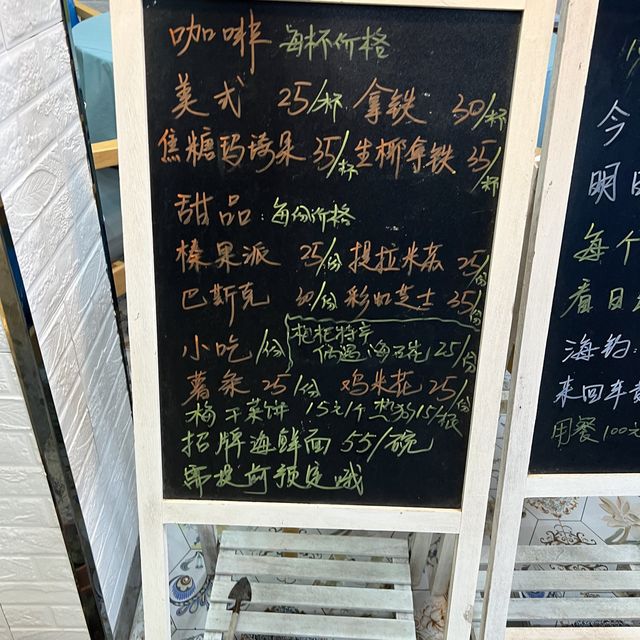 咖啡 每杯价格
美式 25/杯 拿铁 30/杯
焦糖玛琦朵 35/杯 生椰拿铁 35/杯
甜品 每份价格
榛果派 25/份 提拉米苏 25/份
巴斯克 30/份 彩虹芝士 35/份
枇杷特产
小吃 /份 海石花 25/份
薯条 25/份 鸡米花 25/份
梅干菜饼 15元/个
招牌海鲜面 55/碗
需提前预定哦
今
明
每个
看日
海钓:
来回车
用餐100元